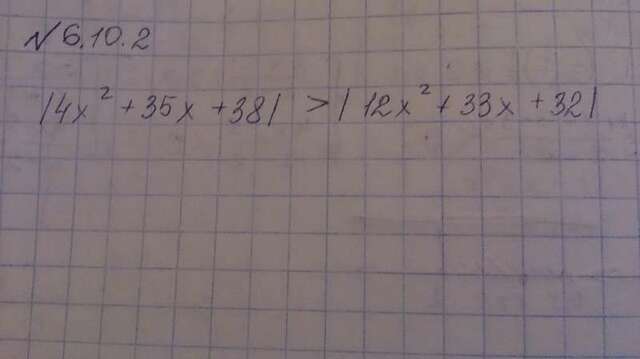 №6.10.2
|4x² + 35x + 38| > |12x² + 33x + 32|